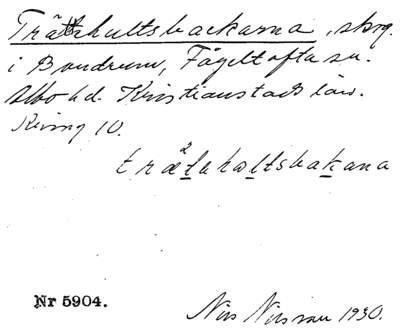 Trättehultsbackarna, skog.
i Bondrum, Fågeltofta sn.
Albo hd. Kristianstads län.
Kring 10.
trætahɷltsbakana
Nr 5904.
Nils Nilsson 1930.